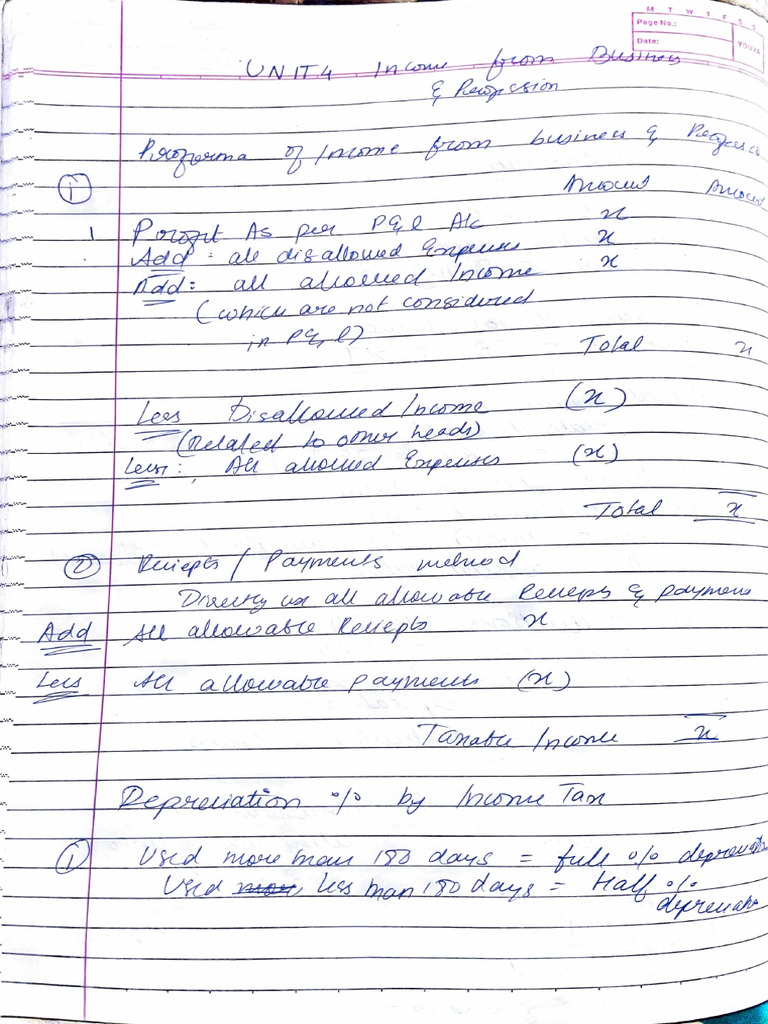 M T W T F S S
Page No.:
Date:
YOUVA
UNIT 4 Income from Business
& Profession
Proforma of Income from business & Profession
Amount Amount
①
1 Profit As per P&L A/c x
Add : all disallowed Expenses x
Add : all allowed Income x
(which are not considered
in P&L)
Total x
Less Disallowed Income (x)
(Related to other heads)
Less : All allowed Expenses (x)
Total x
② Reciepts / Payments method
Directly us all allowable Reciepts & payments
Add All allowable Reciepts x
Less All allowable payments (x)
Taxable Income x
Depreciation % by Income Tax
① Used more than 180 days = full % depreciation
Used less than 180 days = Half %
depreciation